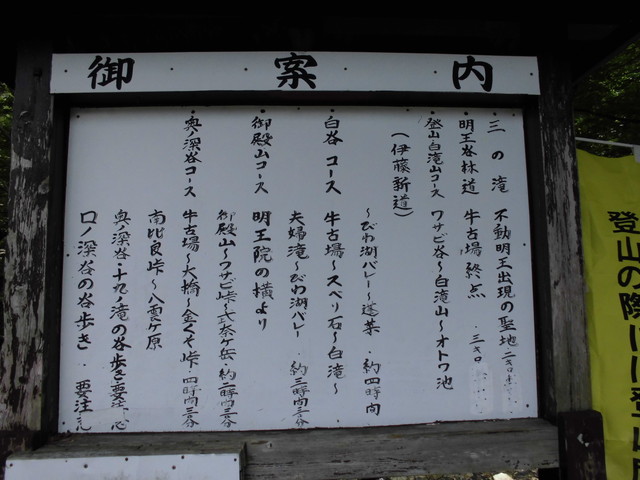 御案内
三の滝 不動明王出現の聖地
明王谷林道 牛古場終点・三キロ
登山白滝山コース ワサビ谷〜白滝山〜オトワ池
(伊藤新道)
〜びわ湖バレー〜蓬莱・約四時間
白谷コース 牛古場〜スベリ石〜白滝〜
夫婦滝〜びわ湖バレー・約三時間三〇分
御殿山コース 明王院の横より
御殿山〜ワサビ峠〜武奈ケ岳・約二時間三〇分
奥ノ深谷コース 牛古場〜大橋〜金くそ峠・四時間三〇分
南比良峠〜八雲ケ原
奥ノ深谷・十九ノ滝の谷歩き要注意
口ノ深谷の谷歩き・要注意
登山の際には登山